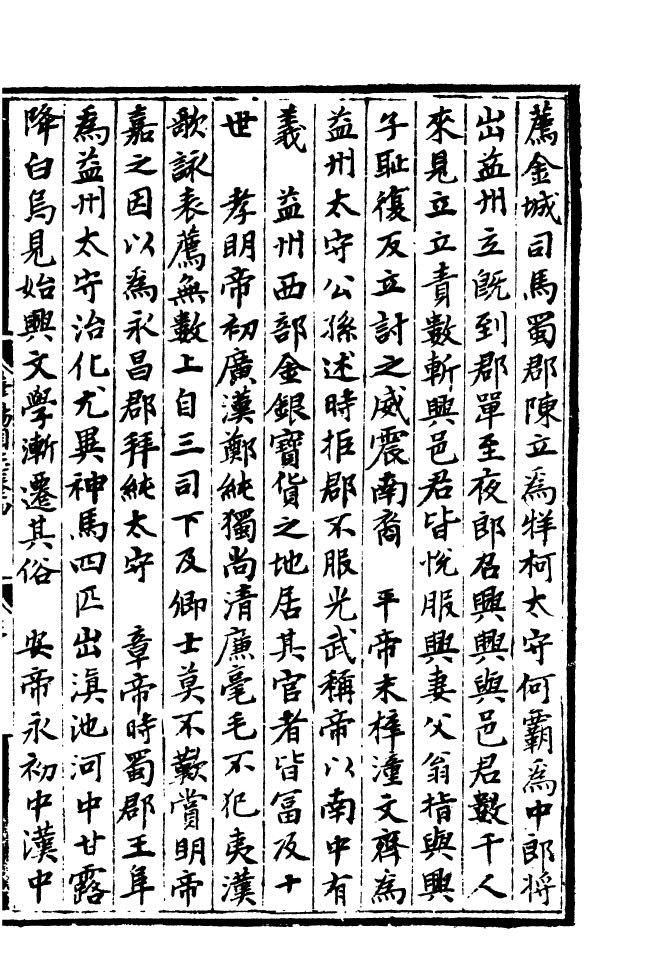 薦金城司馬蜀郡陳立爲牂柯太守何霸爲中郎將
出益州立旣到郡單至夜郎召興興與邑君數千人
來見立立責數斬興邑君皆悅服興妻父翁指與興
子耻復反立討之威震南裔　平帝末梓潼文齊爲
益州太守公孫述時拒郡不服光武稱帝以南中有
義　益州西部金銀寶貨之地居其官者皆冨及十
世　孝明帝初廣漢鄭純獨尚清廉毫毛不犯夷漢
歌詠表薦無數上自三司下及卿士莫不歎賞明帝
嘉之因以爲永昌郡拜純太守　章帝時蜀郡王阜
爲益州太守治化尤異神馬四匹出滇池河中甘露
降白烏見始興文學漸遷其俗　安帝永初中漢中